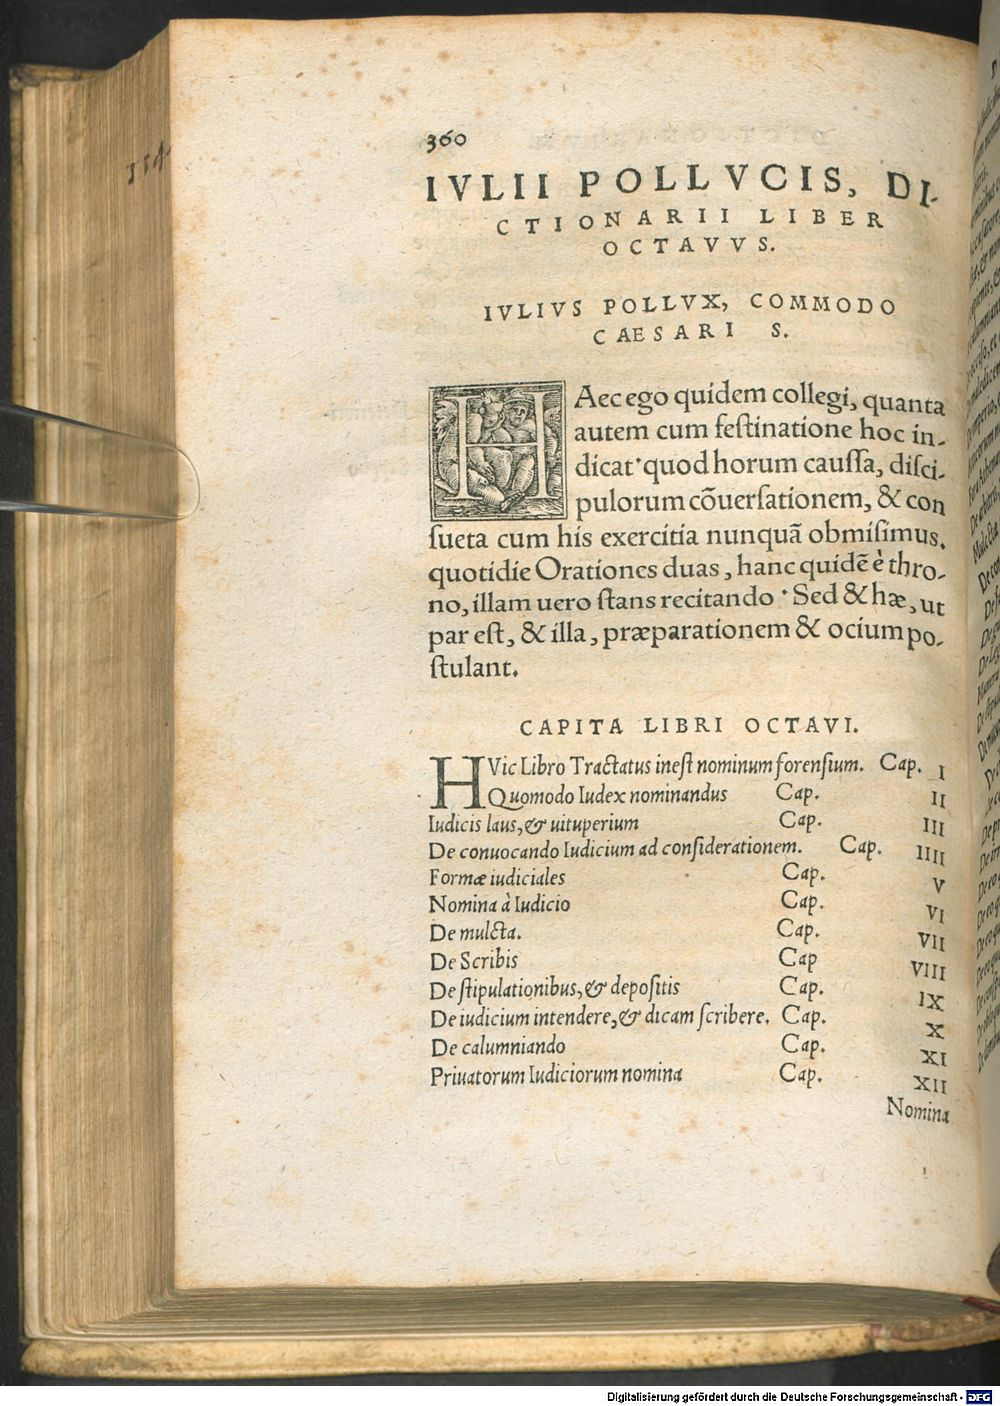 360
IVLII POLLVCIS, DI-
CTIONARII LIBER
OCTAVVS.
IVLIVS POLLVX, COMMODO
CAESARI S.
HAec ego quidem collegi, quanta
autem cum festinatione hoc in-
dicat quod horum caussa, disci-
pulorum cõuersationem, & con
sueta cum his exercitia nunquã obmisimus.
quotidie Orationes duas, hanc quidẽ è thro-
no, illam uero stans recitando · Sed & hæ, ut
par est, & illa, præparationem & ocium po-
stulant.
CAPITA LIBRI OCTAVI.
HVic Libro Tractatus inest nominum forensium. Cap. I
Quomodo Iudex nominandus Cap. II
Iudicis laus, & uituperium Cap. III
De conuocando Iudicium ad considerationem. Cap. IIII
Formæ iudiciales Cap. V
Nomina à Iudicio Cap. VI
De mulcta. Cap. VII
De Scribis Cap VIII
De stipulationibus, & depositis Cap. IX
De iudicium intendere, & dicam scribere. Cap. X
De calumniando Cap. XI
Priuatorum Iudiciorum nomina Cap. XII
Nomina
Digitalisierung gefördert durch die Deutsche Forschungsgemeinschaft - DFG